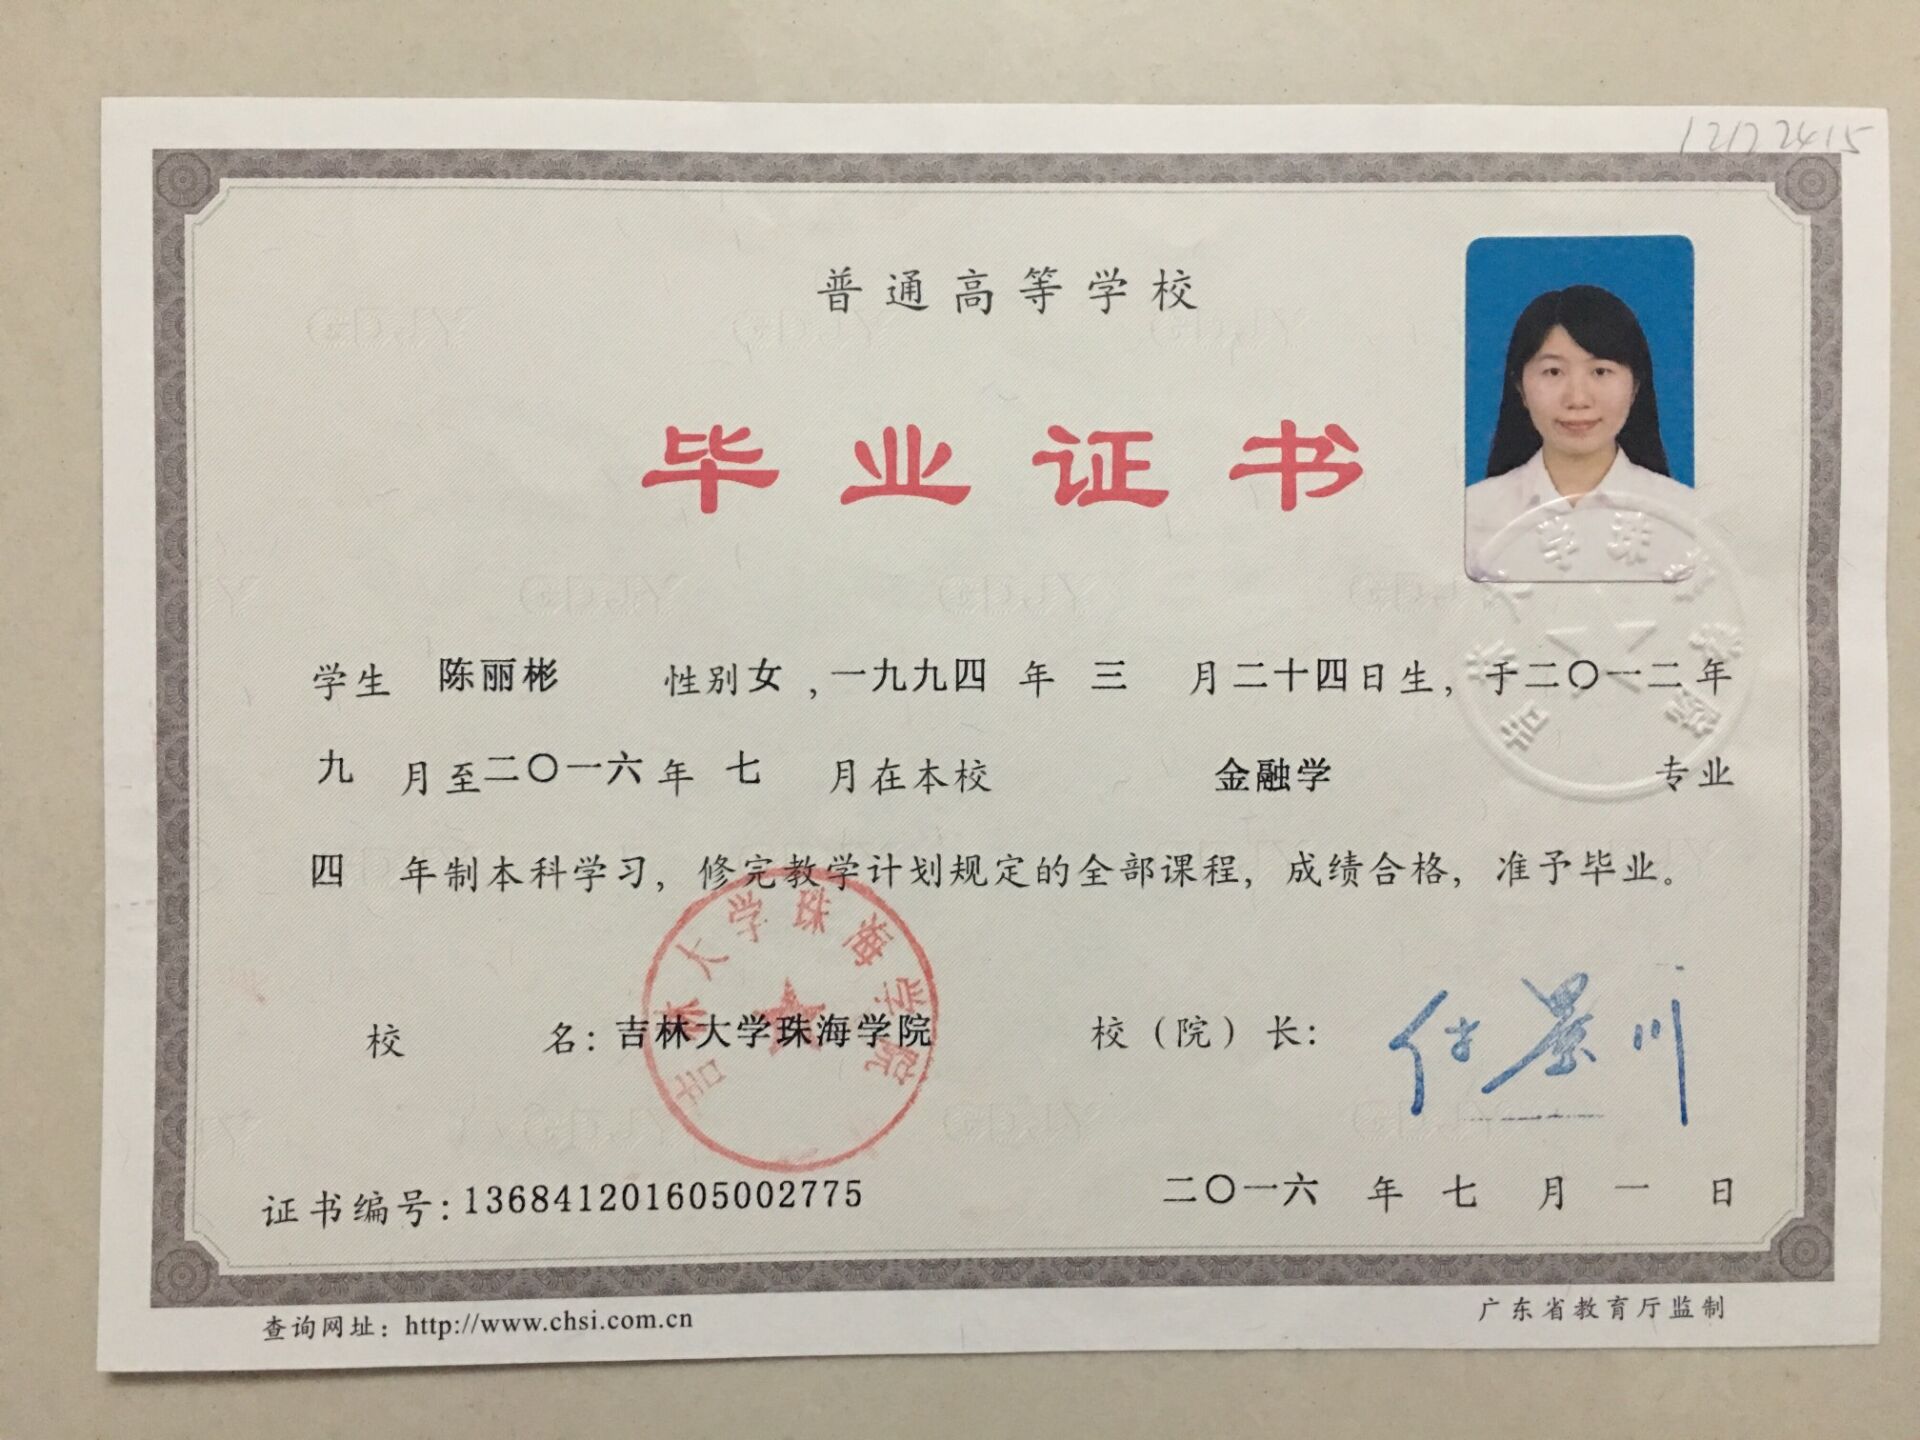 12122415
普通高等学校
毕业证书
学生 陈丽彬 性别女，一九九四年三月二十四日生，于二〇一二年
九月至二〇一六年七月在本校 金融学 专业
四年制本科学习，修完教学计划规定的全部课程，成绩合格，准予毕业。
校名：吉林大学珠海学院 校（院）长：付景川
吉林大学珠海学院
吉林大学珠海学院
证书编号：136841201605002775 二〇一六年七月一日
查询网址：http://www.chsi.com.cn 广东省教育厅监制